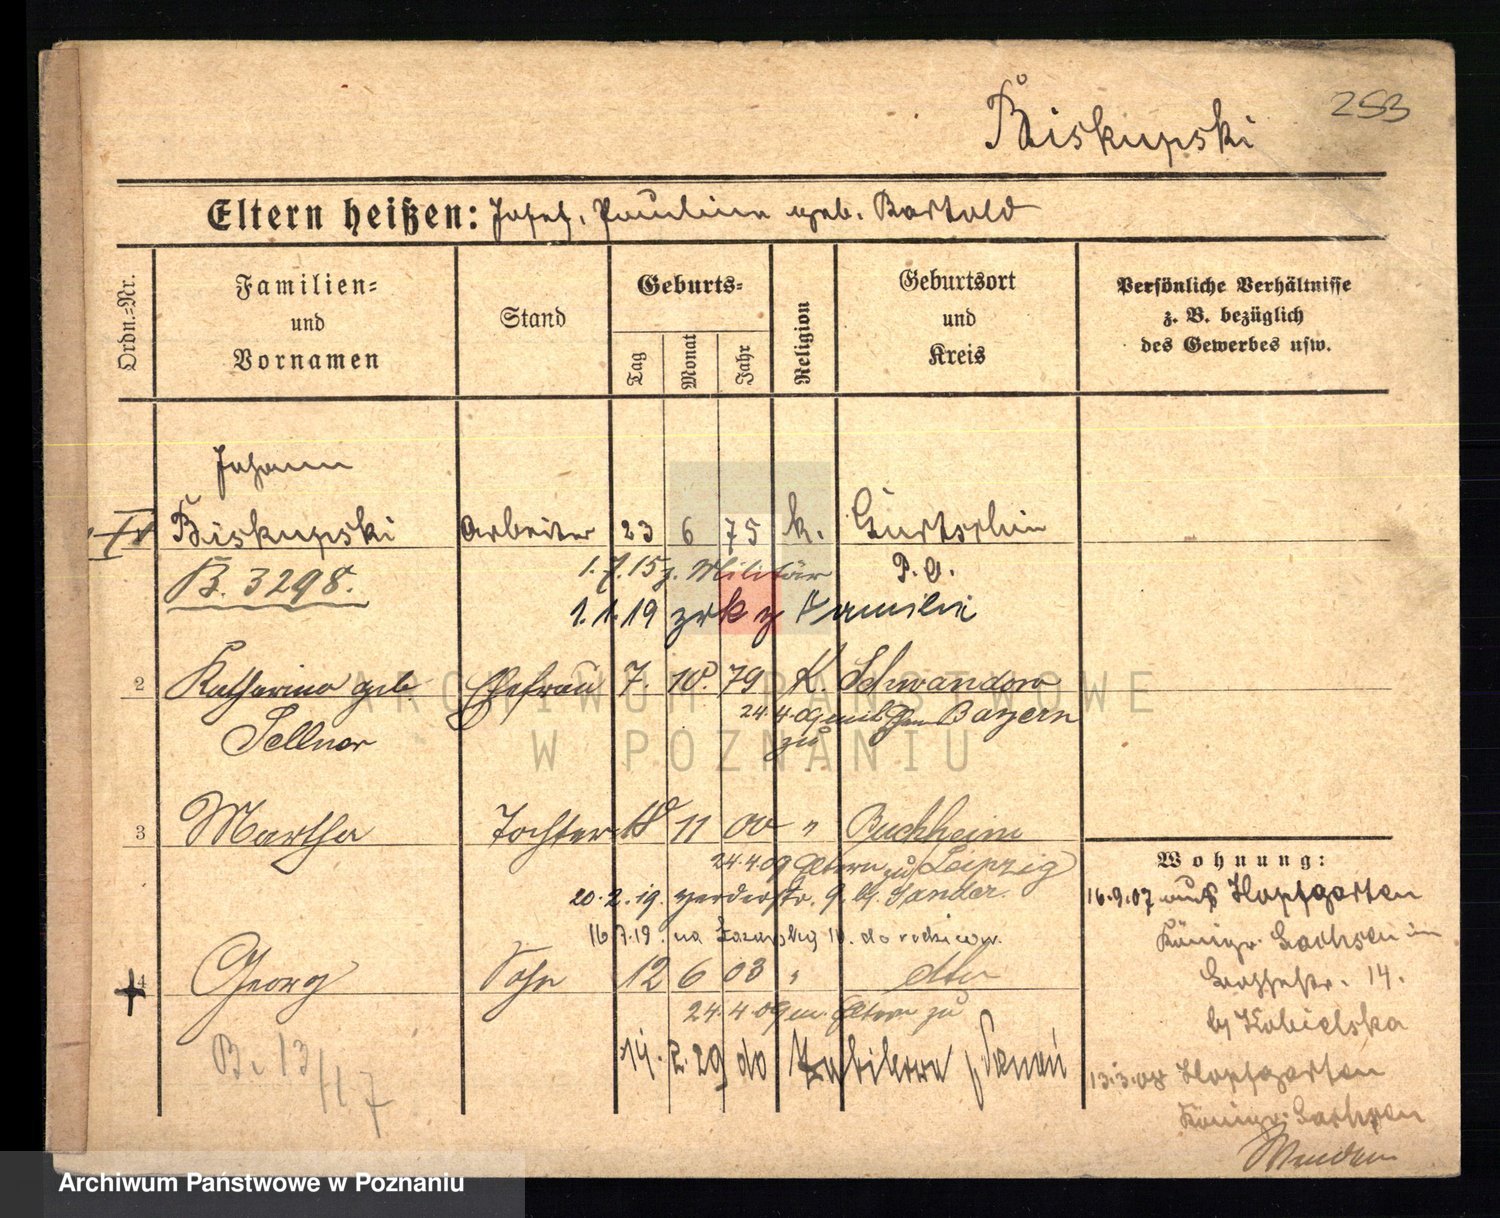 253
Biskupski
Eltern heißen: Josef, Paulina geb. Bartold
Ordn.=Nr.
Familien=
und
Vornamen
Stand
Geburts=
Tag
Monat
Jahr
Religion
Geburtsort
und
Kreis
Persönliche Verhältnisse
z. B. bezüglich
des Gewerbes usw.
Johann
Biskupski Arbeiter 23 6 75 k. Gurtschin
B. 3298. 1.7.15 z. Militär P. O.
1.1.19 zrk z Familie
2 Katharina geb. Ehefrau 7. 10. 79 K. Schwandorf
Sellner 24.4.09 Bayern
zu
3 Martha Tochter 18 11 00 " Buchheim
24.4.09 Eltern zu Leipzig
20.2.19. 9. b/. Sander.
16.7.19. na Łazarską 10. do rodziców.
4 Georg Sohn 12 6 03 "
24.4.09 m. Eltern zu
14.2.29 do Żabikowa
B. 13/11 7
Wohnung:
16.9.07 aus Hopfgarten
Königr. Sachsen in
14.
b/ Kobielska
13.3.08 Hopfgarten
Königr. Sachsen
ARCHIWUM PAŃSTWOWE
W POZNANIU
Archiwum Państwowe w Poznaniu